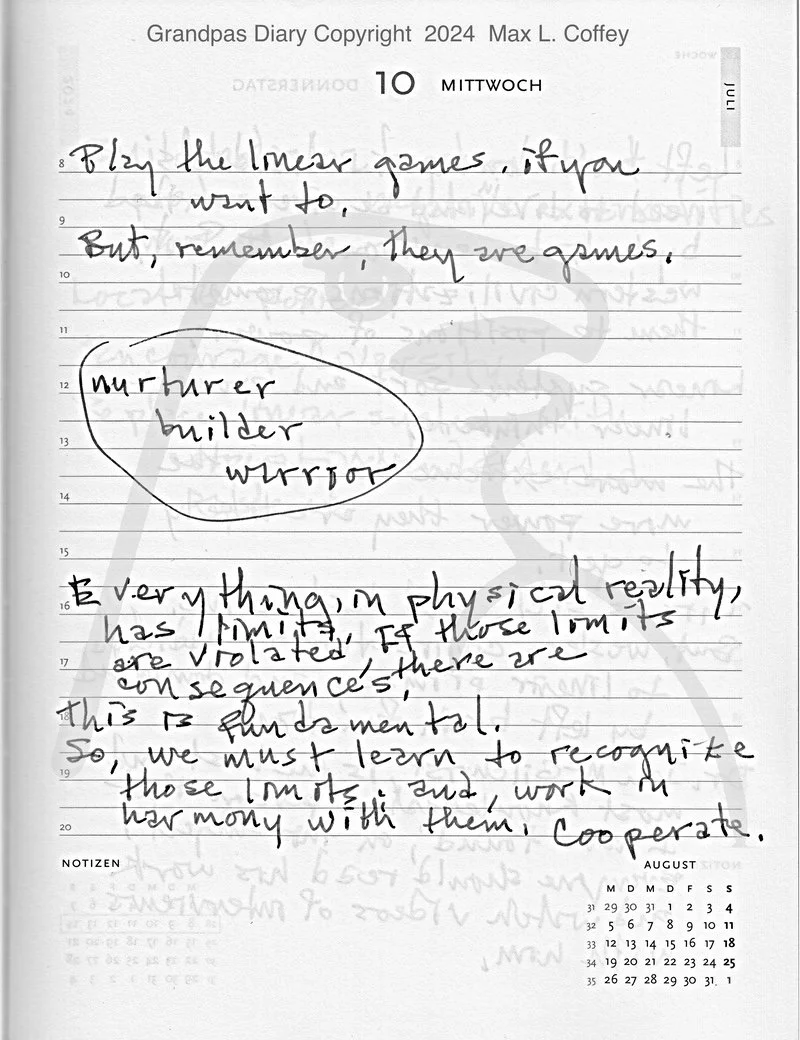 Grandpas Diary Copyright 2024 Max L. Coffey
10 MITTWOCH
JULI
8 Play the linear games, if you
want to,
9
But, remember, they are games.
10
11
12 nurturer
builder
13
warrior
14
15
Everything, in physical reality,
16
has limits, If those limits
are violated, there are
17
consequences,
18 this is fundamental.
So, we must learn to recognize
19
those limits, and, work in
harmony with them. Cooperate.
20
NOTIZEN
AUGUST
M D M D F S S
31 29 30 31 1 2 3 4
32 5 6 7 8 9 10 11
33 12 13 14 15 16 17 18
34 19 20 21 22 23 24 25
35 26 27 28 29 30 31 1